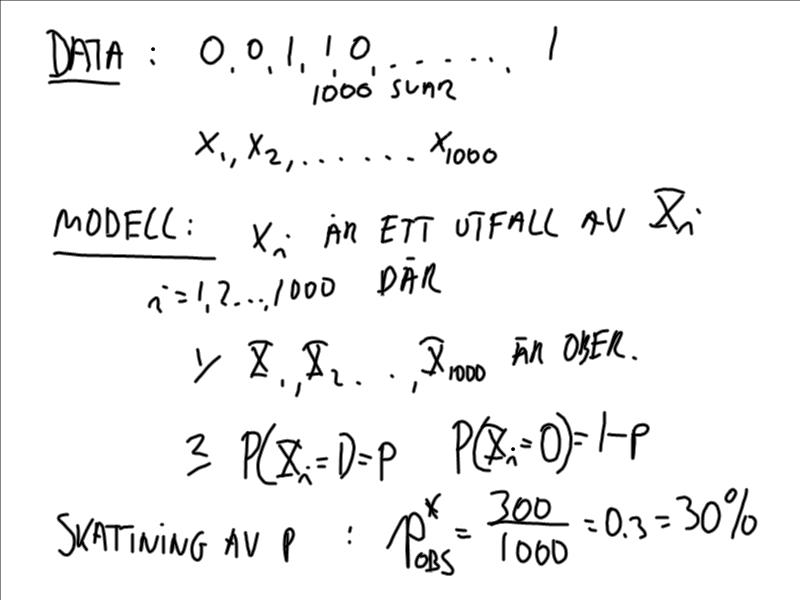 DATA : 0, 0, 1, 1, 0, . . . . . . , 1
1000 SVAR
x₁, x₂, . . . . . . . x₁₀₀₀
MODELL: xᵢ ÄR ETT UTFALL AV Xᵢ
i = 1, 2 ..., 1000 DÄR
1) X₁, X₂ . . , X₁₀₀₀ ÄR OBER.
2) P(Xᵢ = 1) = p P(Xᵢ = 0) = 1-p
SKATINING AV P : p*_OBS = 300/1000 = 0.3 = 30%